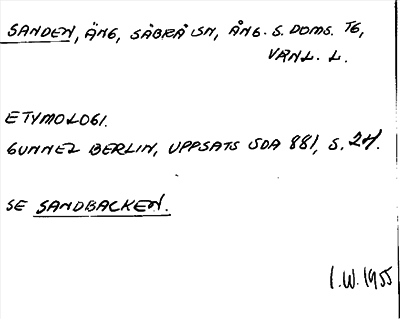 SANDEN, ÄNG, SÄBRÅ SN, ÅNG. S. DOMS. TG,
VRNL. L.
ETYMOLOGI.
GUNNEL BERLIN, UPPSATS SDA 881, S. 24.
SE SANDBACKEN.
I.W. 1955